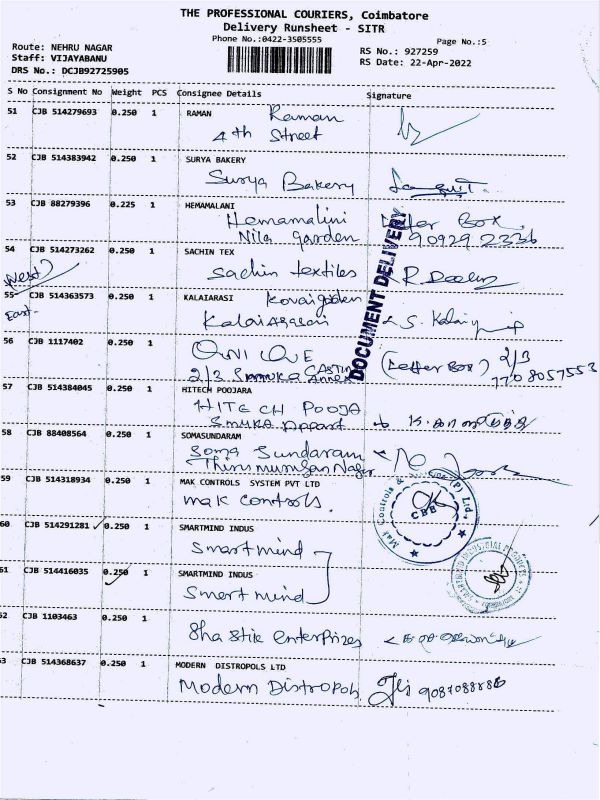 THE PROFESSIONAL COURIERS, Coimbatore
Delivery Runsheet - SITR
Phone No.:0422-3505555
Page No.:5
Route: NEHRU NAGAR
Staff: VIJAYABANU
DRS No.: DCJB92725905
RS No.: 927259
RS Date: 22-Apr-2022
S No Consignment No Weight PCS Consignee Details Signature
51 CJB 514279693 0.250 1 RAMAN Raman
4th Street
52 CJB 514383942 0.250 1 SURYA BAKERY
Surya Bakery
53 CJB 88279396 0.225 1 HEMAMALANI
Hemamalini Letter Box
Nila garden 90929 2336
54 CJB 514273262 0.250 1 SACHIN TEX
Sachin textiles R.
West
55 CJB 514363573 0.250 1 KALAIARASI Kovaigarden
East
Kalaiarasai S.
DOCUMENT DELIVERY
56 CJB 1117402 0.250 1
UNIQUE (Letter Box) 2/3
2/3 7708057553
57 CJB 514384045 0.250 1 HITECH POOJARA
HITECH POOJA
58 CJB 88408564 0.250 1 SOMASUNDARAM
Soma Sundaram
Thirumurugan Nagar
59 CJB 514318934 0.250 1 MAK CONTROLS SYSTEM PVT LTD
mak controls.
Mak Controls & (P) Ltd.
CBE
60 CJB 514291281 0.250 1 SMARTMIND INDUS
Smartmind
61 CJB 514416035 0.250 1 SMARTMIND INDUS
Smartmind
62 CJB 1103463 0.250 1
Sha Stik enterprizes
63 CJB 514368637 0.250 1 MODERN DISTROPOLS LTD
Modern Distropols 9087088886